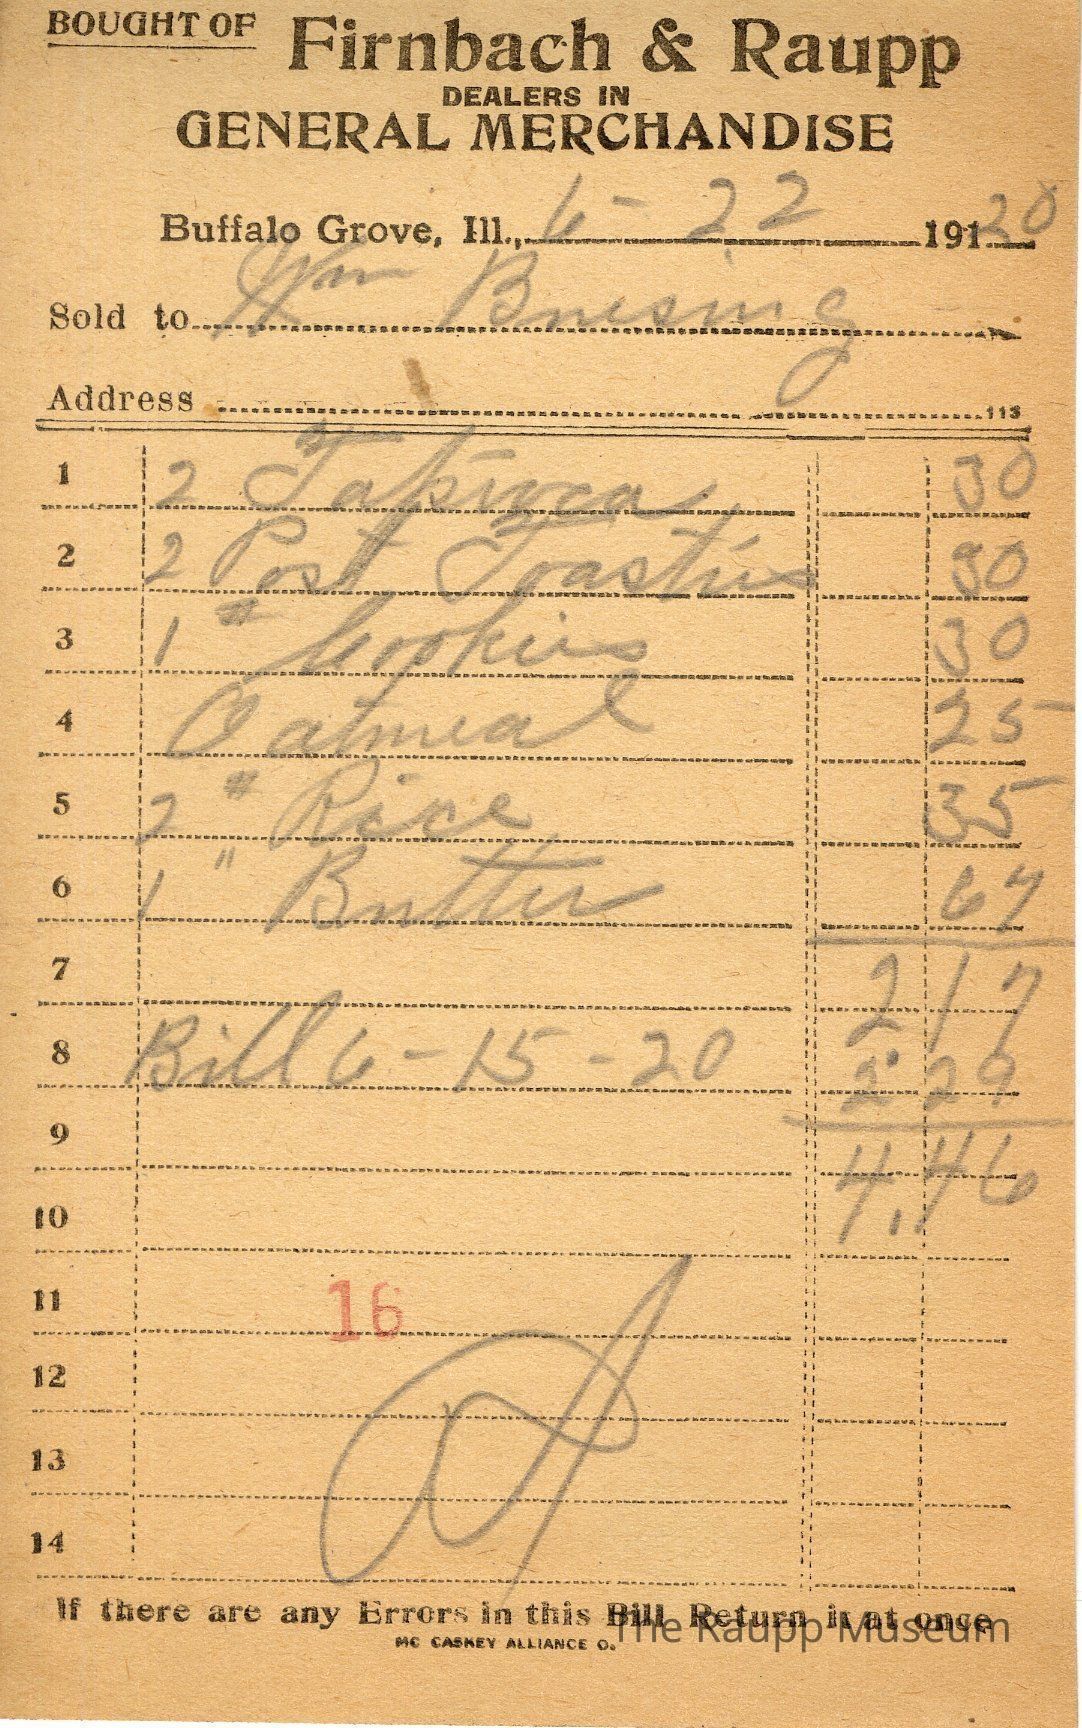 BOUGHT OF Firnbach & Raupp
DEALERS IN
GENERAL MERCHANDISE
Buffalo Grove, Ill., 6 - 22 191 20
Sold to Wm Busing
Address 113
1 2 # Tapioca 30
2 2 Post Toasties 30
3 1 # Cookies 30
4 Oatmeal 25
5 2 # Rice 35
6 1 " Butter 67
7 2 17
8 Bill 6 - 15 - 20 2 29
9 4.46
10
11 16
12
13
14
If there are any Errors in this Bill Return it at once
MC CASKEY ALLIANCE O.
The Raupp Museum